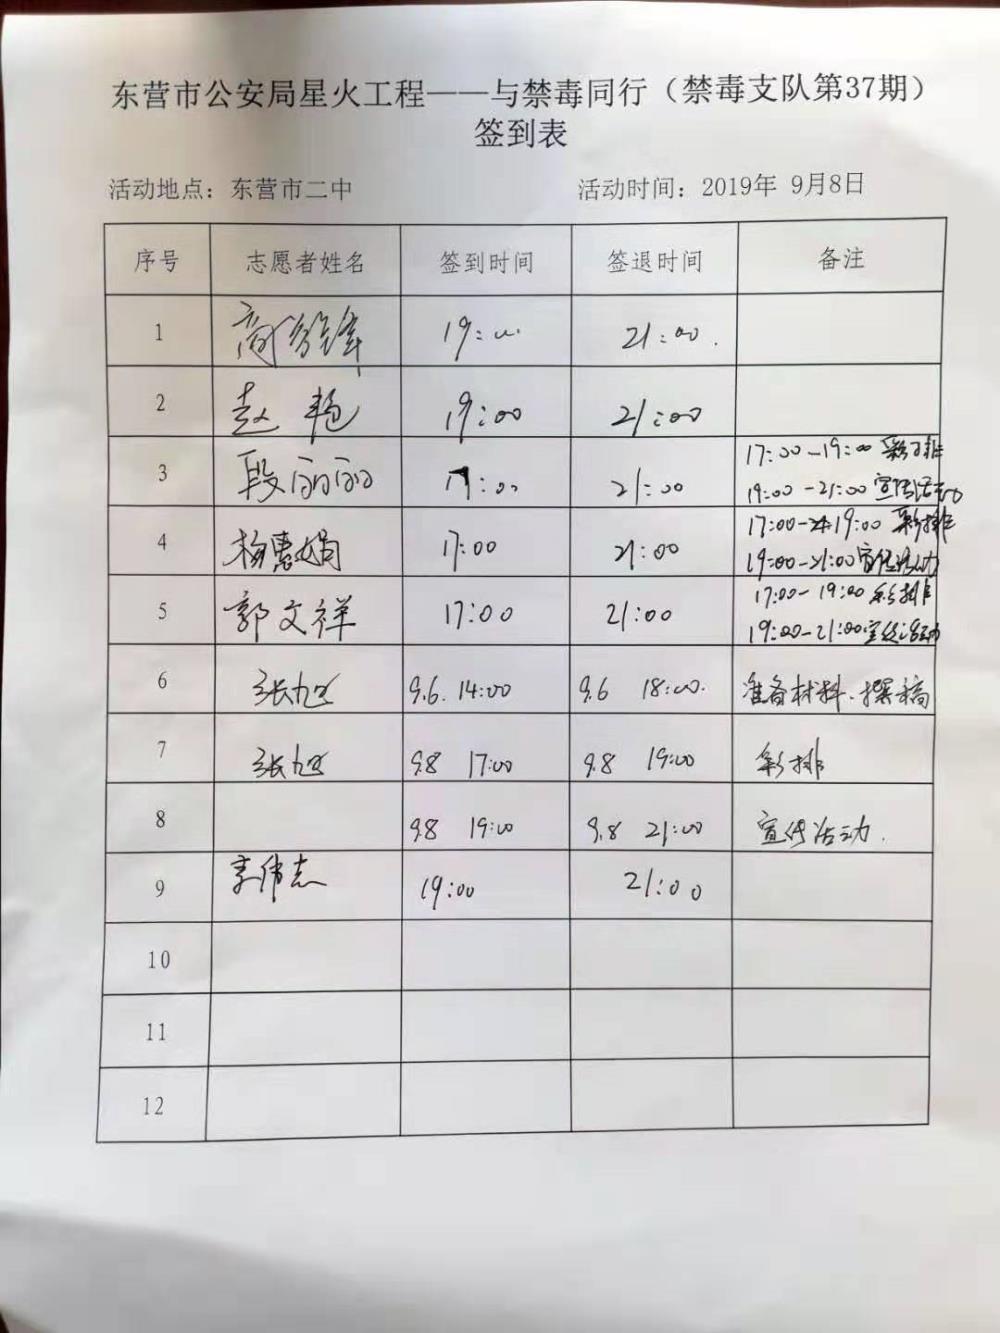 东营市公安局星火工程——与禁毒同行（禁毒支队第37期）
签到表
活动地点：东营市二中 活动时间：2019年 9月8日
序号 志愿者姓名 签到时间 签退时间 备注
1 19:00 21:00.
2 赵艳 19:00 21:00
17:00-19:00 彩排
3 段丽丽 17:00 21:00
19:00-21:00 宣传活动
17:00-19:00 彩排
4 梅惠娟 17:00 21:00
19:00-21:00 宣传活动
17:00-19:00 彩排
5 郭文祥 17:00 21:00
19:00-21:00 宣传活动
6 张旭 9.6. 14:00 9.6 18:00. 准备材料、撰稿
7 张旭 9.8 17:00 9.8 19:00 彩排
8 9.8 19:00 9.8 21:00 宣传活动.
9 李伟志 19:00 21:00
10
11
12